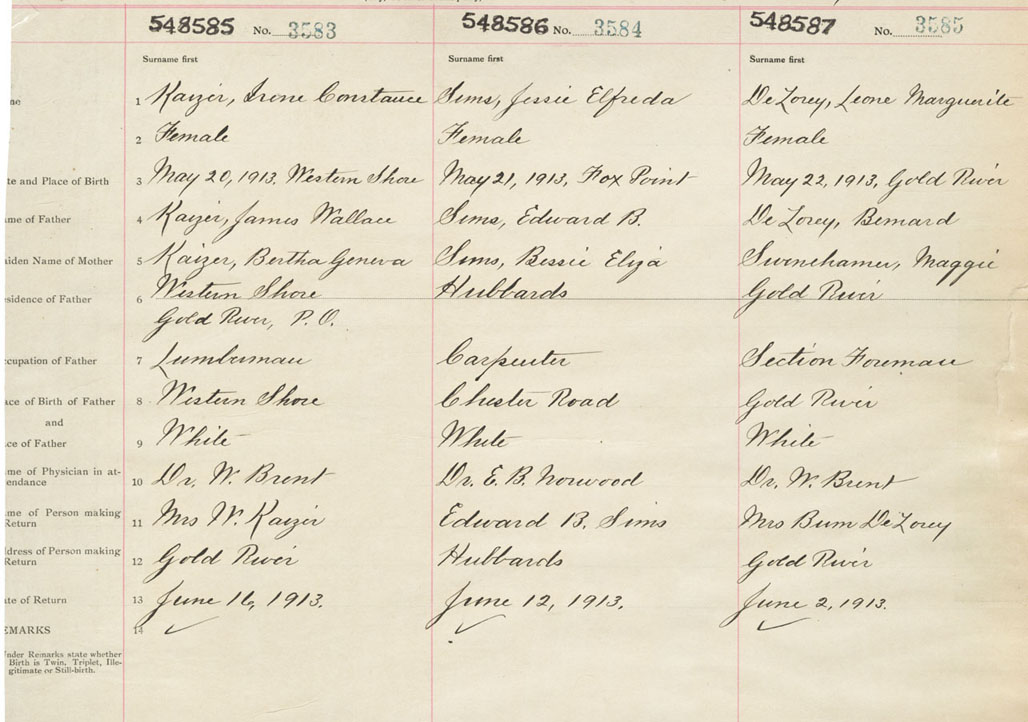 548585 No. 3583 548586 No. 3584 548587 No. 3585
Surname first Surname first Surname first
me 1 Kaizer, Irene Constance Sims, Jessie Elfreda DeZorey, Leone Marguerite
2 Female Female Female
te and Place of Birth 3 May 20, 1913. Western Shore May 21, 1913, Fox Point May 22, 1913, Gold River
me of Father 4 Kaizer, James Wallace Sims, Edward B. DeZorey, Bernard
aiden Name of Mother 5 Kaizer, Bertha Geneva Sims, Bessie Eliza Swinehamer, Maggie
esidence of Father 6 Western Shore Hubbards Gold River
Gold River, P.O.
ccupation of Father 7 Lumberman Carpenter Section Foreman
ace of Birth of Father 8 Western Shore Chester Road Gold River
and
ce of Father 9 White White White
me of Physician in at-
endance 10 Dr. W. Brent Dr. E. B. Norwood Dr. W. Brent
me of Person making
Return 11 Mrs W. Kaizer Edward B. Sims Mrs DeZorey
ddress of Person making
Return 12 Gold River Hubbards Gold River
te of Return 13 June 16, 1913. June 12, 1913. June 2, 1913.
EMARKS 14 ✓ ✓ ✓
nder Remarks state whether
Birth is Twin, Triplet, Ille-
gitimate or Still-birth.